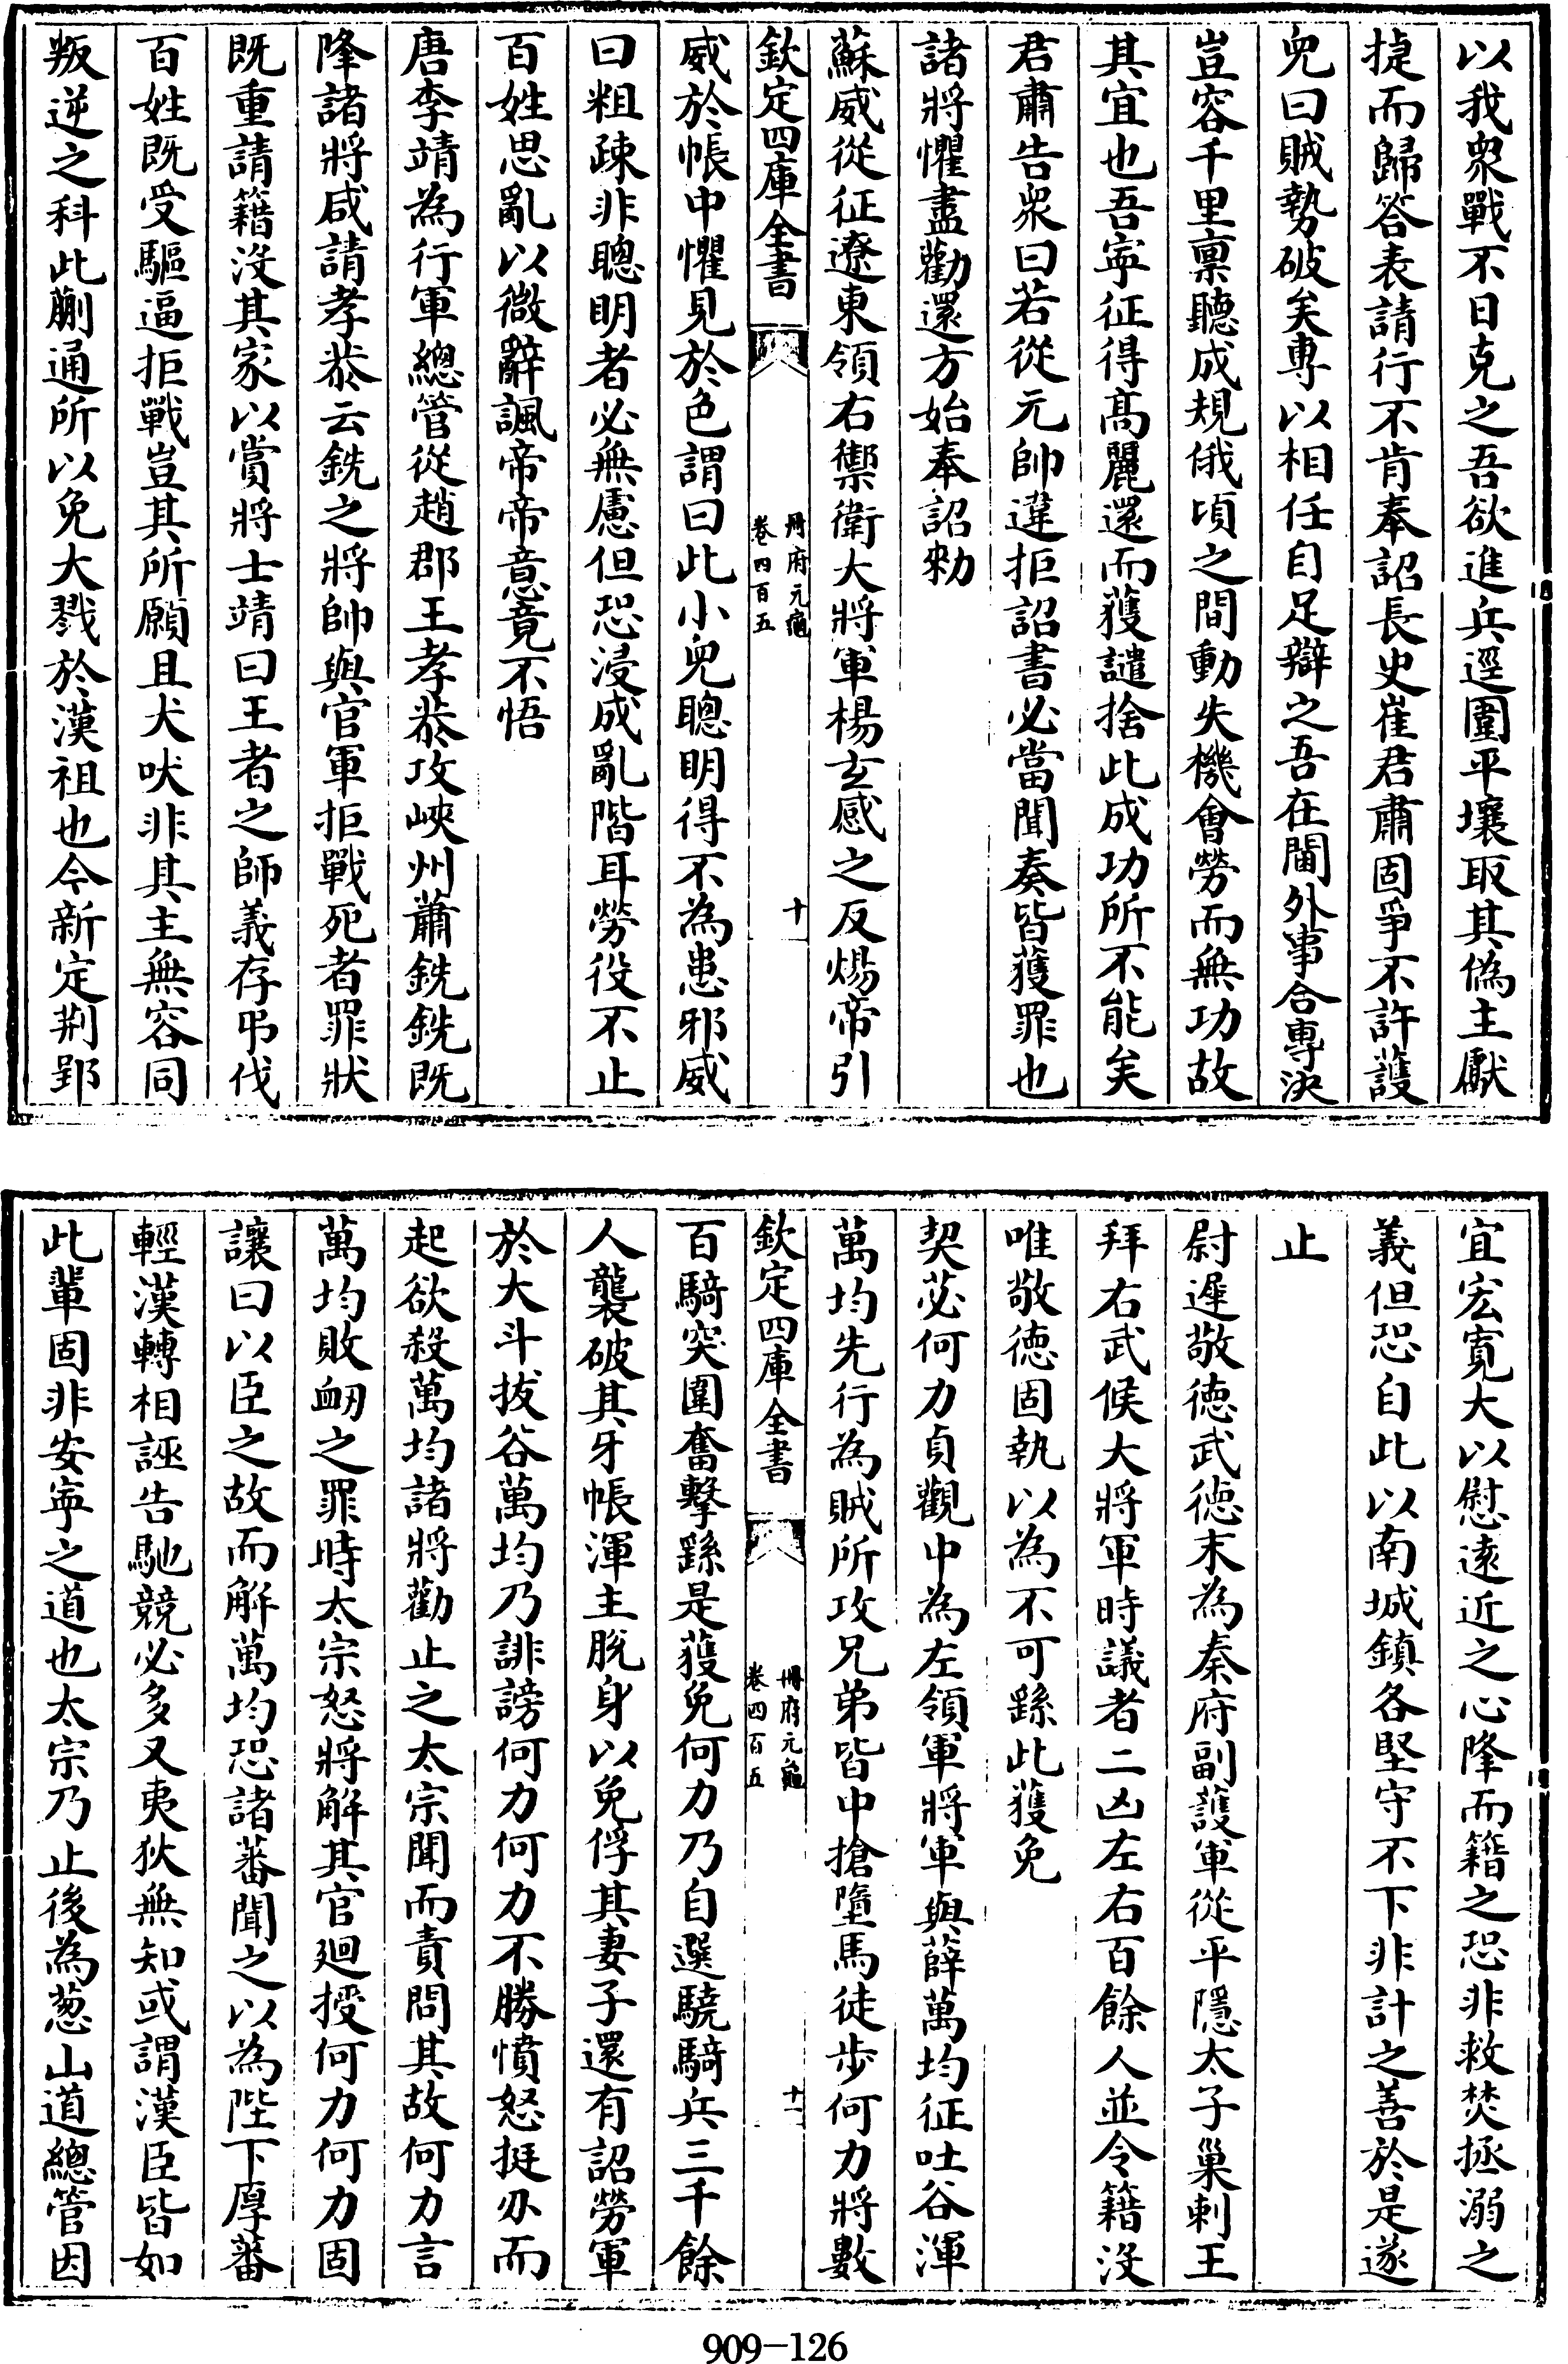 以我衆戰不日克之吾欲進兵逕圍平壤取其偽主獻
捷而歸答表請行不肯奉詔長史崔君肅固爭不許護
兒曰賊勢破矣專以相任自足辯之吾在閫外事合專決
豈容千里禀聽成規俄頃之間動失機會勞而無功故
其宜也吾寧征得髙麗還而獲譴捨此成功所不能矣
君肅告衆曰若從元帥違拒詔書必當聞奏皆獲罪也
諸將懼盡勸還方始奉詔勑
蘇威從征遼東領右禦衛大將軍楊玄感之反煬帝引
欽定四庫全書
冊府元龜
卷四百五
十
威於帳中懼見於色謂曰此小兒聰明得不為患邪威
曰粗疎非聰明者必無慮但恐浸成亂階耳勞役不止
百姓思亂以微辭諷帝帝意竟不悟
唐李靖為行軍總管從趙郡王孝恭攻峽州蕭銑銑既
降諸將咸請孝恭云銑之將帥與官軍拒戰死者罪狀
既重請籍沒其家以賞將士靖曰王者之師義存弔伐
百姓既受驅逼拒戰豈其所願且犬吠非其主無容同
叛逆之科此蒯通所以免大戮於漢祖也今新定荆郢
宜宏寛大以慰遠近之心降而籍之恐非救焚拯溺之
義但恐自此以南城鎮各堅守不下非計之善於是遂
止
尉遲敬徳武徳末為秦府副護軍從平隱太子巢剌王
拜右武候大將軍時議者二凶左右百餘人並令籍沒
唯敬徳固執以為不可繇此獲免
契苾何力貞觀中為左領軍將軍與薛萬均征吐谷渾
萬均先行為賊所攻兄弟皆中搶墮馬徒步何力將數
欽定四庫全書
冊府元龜
卷四百五
十一
百騎突圍奮擊繇是獲免何力乃自選驍騎兵三千餘
人襲破其牙帳渾主脫身以免俘其妻子還有詔勞軍
於大斗拔谷萬均乃誹謗何力何力不勝憤怒挺刅而
起欲殺萬均諸將勸止之太宗聞而責問其故何力言
萬均敗衂之罪時太宗怒將解其官廻授何力何力固
讓曰以臣之故而解萬均恐諸蕃聞之以為陛下厚蕃
輕漢轉相誣告馳競必多又夷狄無知或謂漢臣皆如
此輩固非安寧之道也太宗乃止後為葱山道總管因
909-126